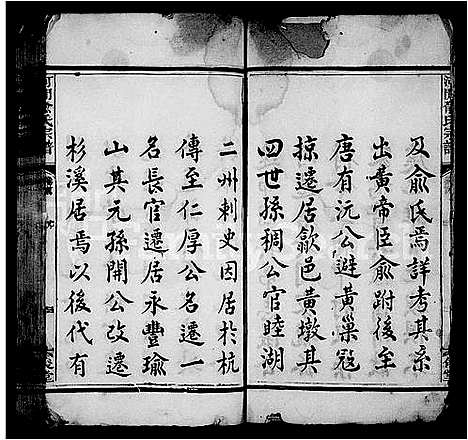 及俞氏焉詳考其系
出黃帝臣俞跗後至
唐有沅公避黃巢寇
掠遷居歙邑黃墩其
四世孫稠公官睦湖
二州刺史因居於杭
傳至仁厚公名遷一
名長官遷居永豐瑜
山其元孫開公改遷
杉溪居焉以後代有
河間俞氏宗譜